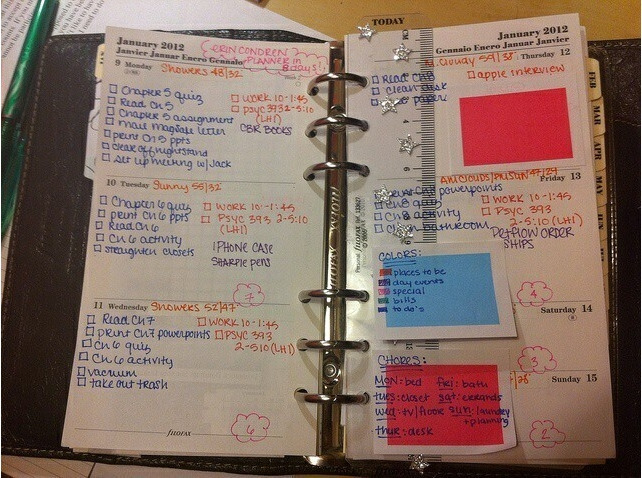 January 2012
Janvier Januar Enero Gennaio
ERIN CONDREN
PLANNER IN
8 days!
9 Monday Showers 48/32
Chapter 5 quiz
Read Ch 5
Chapter 5 assignment
mail magvale letter
print Ch 5 ppts
clear off nightstand
Set up meeting w/ Jack
WORK 10-1:45
PSYC 393 2-5:10
(LH1)
CBR BOOKS
10 Tuesday Sunny 55/32
Chapter 6 quiz
print Ch 6 ppts
Read Ch 6
Ch 6 activity
straighten closets
WORK 10-1:45
PSYC 393 2-5:10
(LH1)
IPHONE CASE
SHARPIE PENS
7
11 Wednesday Showers 52/47
Read Ch 7
print Ch 7 powerpoints
Ch 6 quiz
Ch 6 activity
vacuum
take out trash
WORK 10-1:45
PSYC 393
2-5:10 (LH1)
6
filofax
TODAY
CM
January 2012
Gennaio Enero Januar Janvier
Cloudy 59/38 Thursday 12
Read Ch 8
clean desk
papers
apple interview
Friday 13
powerpoints
Ch 8 quiz
Ch 8 activity
bathroom
WORK 10-1:45
PSYC 393
2-5:10 (LH1)
PETFLOW ORDER
SHIPS
COLORS:
places to be
day events
special
bills
to do's
4
Saturday 14
3
CHORES:
MON: bed
tues: closet
wed: tv/floor
thur: desk
fri: bath
sat: errands
sun: laundry
+planning
Sunday 15
2
filofax
FEB
MAR
APR
MAY